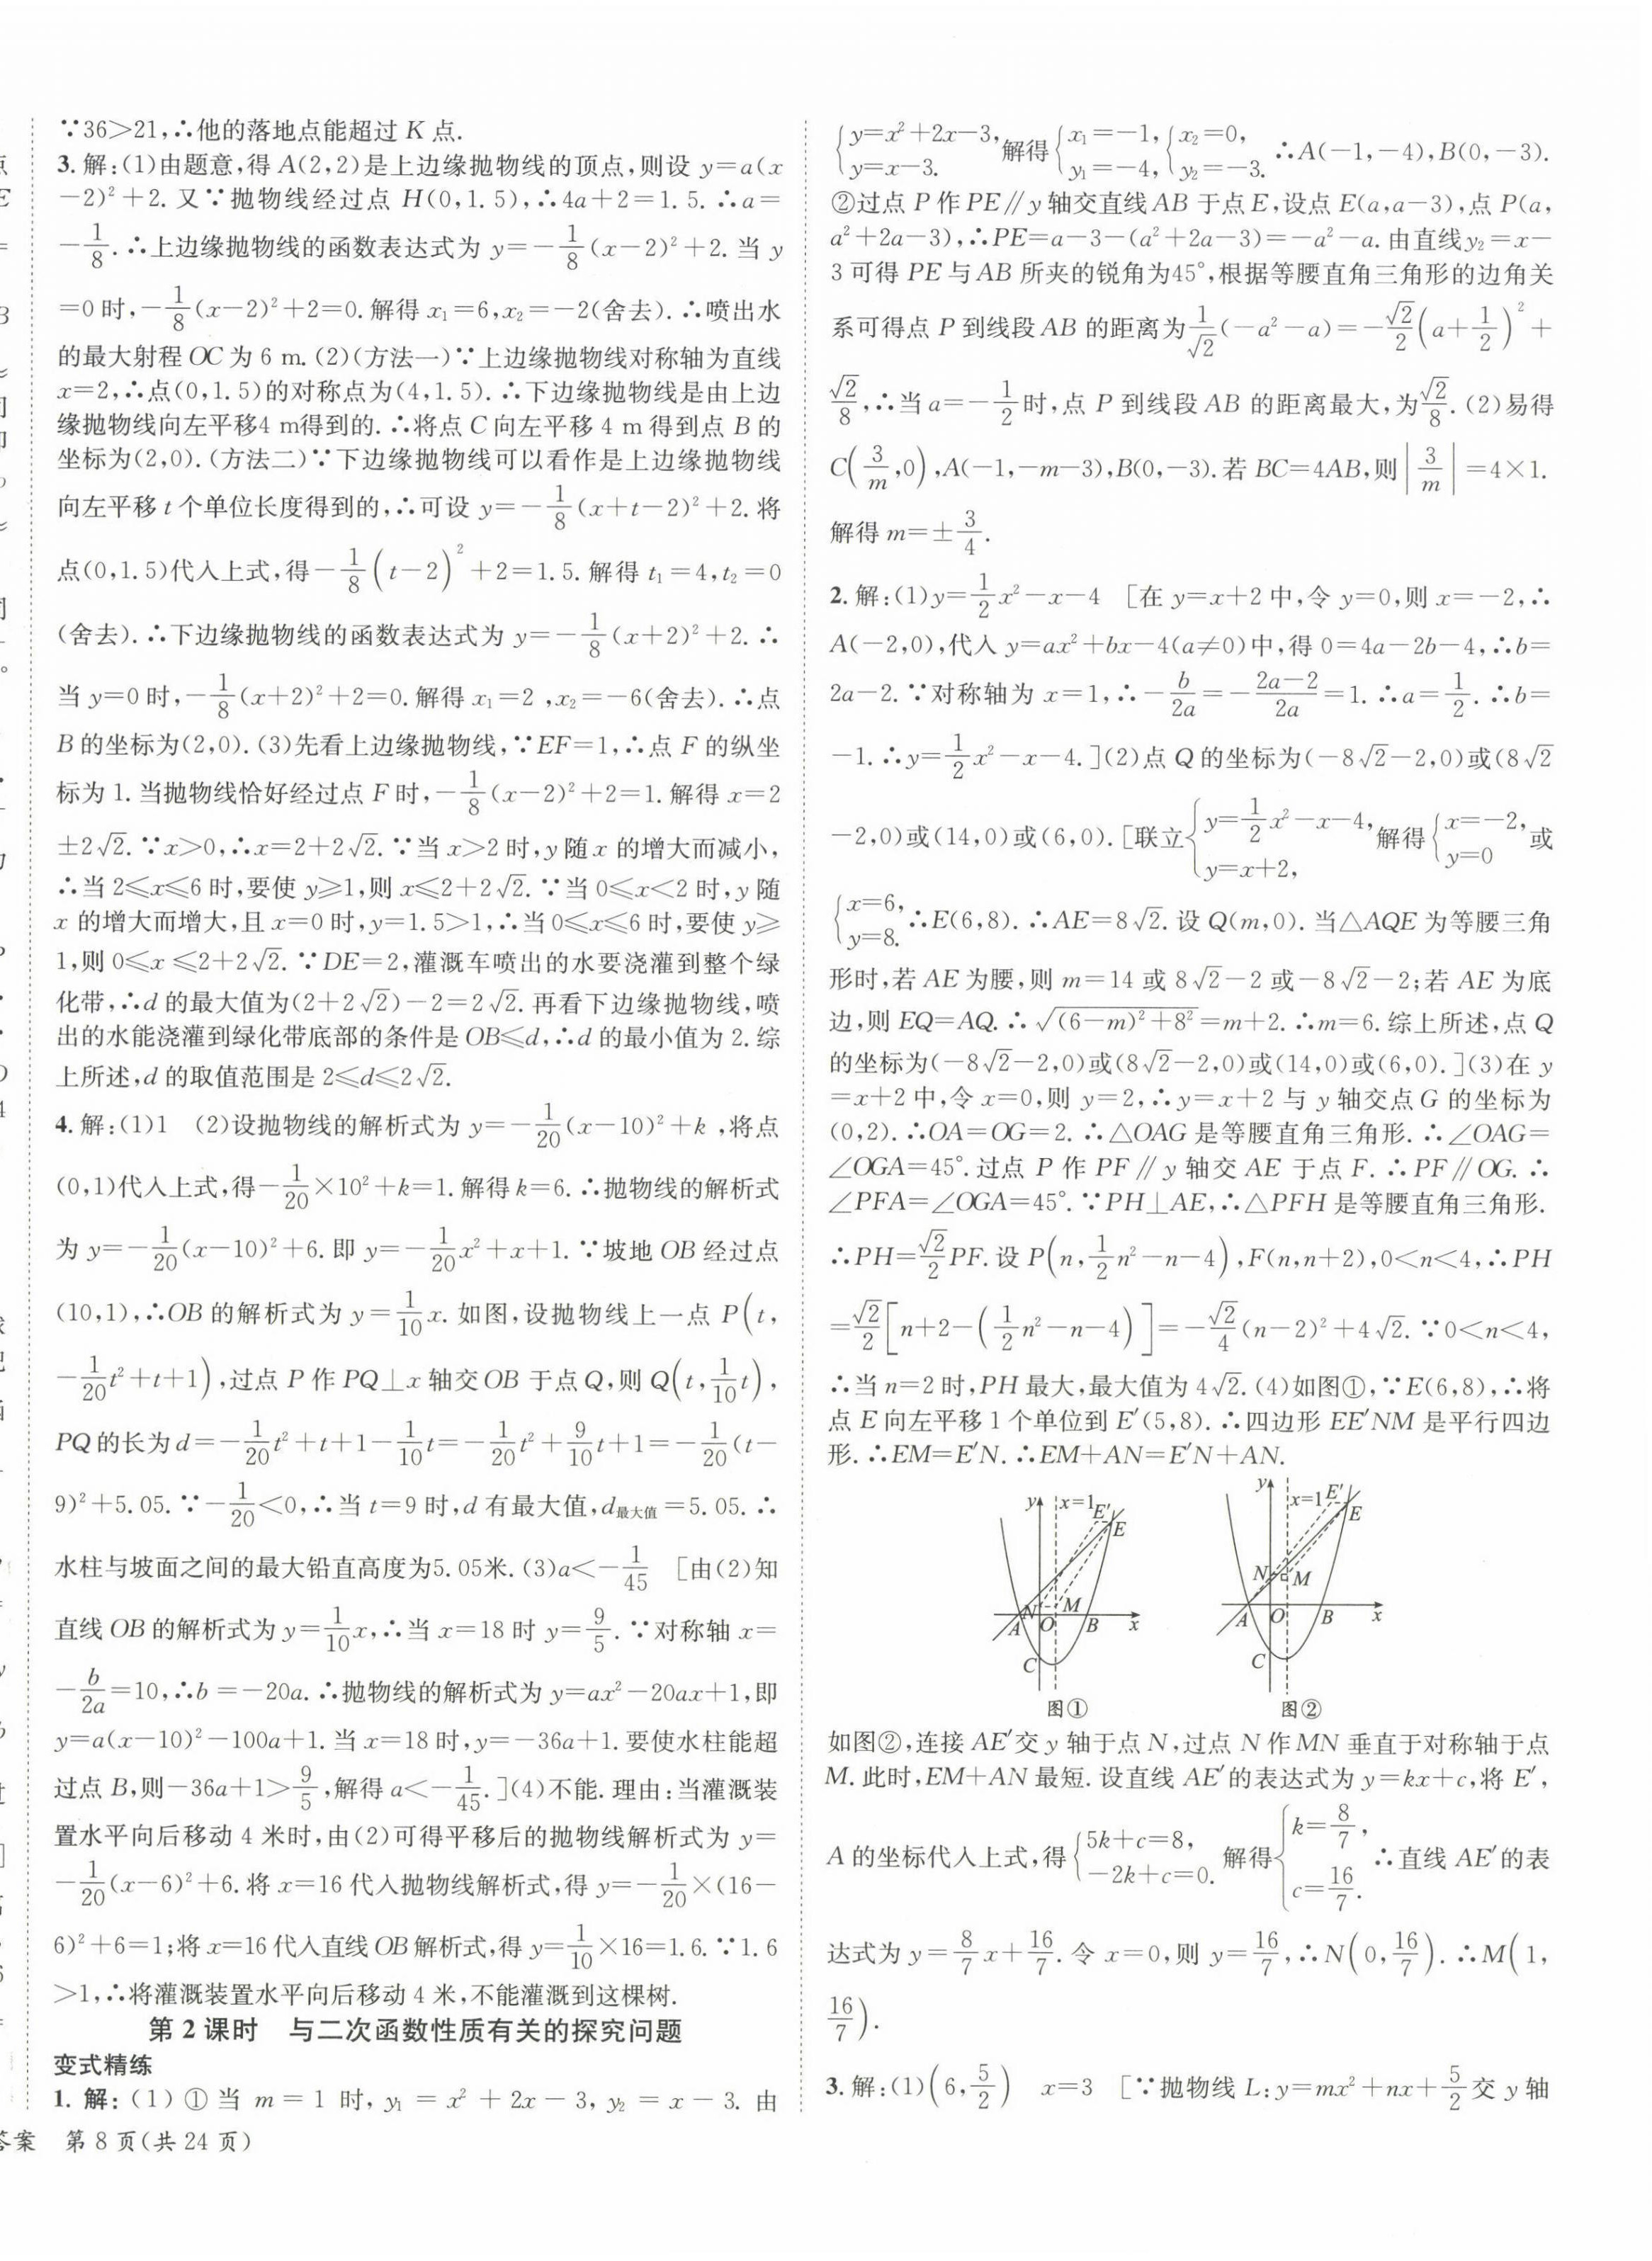 ∵36>21,∴他的落地点能超过 K 点.
3. 解:(1)由题意,得 A(2,2)是上边缘抛物线的顶点,则设 y=a(x
-2)²+2. 又∵抛物线经过点 H(0,1.5),∴4a+2=1.5. ∴a=
-1/8. ∴上边缘抛物线的函数表达式为 y=-1/8(x-2)²+2. 当 y
=0 时,-1/8(x-2)²+2=0. 解得 x₁=6,x₂=-2(舍去). ∴喷出水
的最大射程 OC 为 6 m. (2)(方法一)∵上边缘抛物线对称轴为直线
x=2,∴点(0,1.5)的对称点为(4,1.5). ∴下边缘抛物线是由上边
缘抛物线向左平移4 m得到的. ∴将点 C 向左平移 4 m 得到点 B 的
坐标为(2,0). (方法二)∵下边缘抛物线可以看作是上边缘抛物线
向左平移 t 个单位长度得到的,∴可设 y=-1/8(x+t-2)²+2. 将
点(0,1.5)代入上式,得-1/8(t-2)²+2=1.5. 解得 t₁=4,t₂=0
(舍去). ∴下边缘抛物线的函数表达式为 y=-1/8(x+2)²+2. ∴
当 y=0 时,-1/8(x+2)²+2=0. 解得 x₁=2 ,x₂=-6(舍去). ∴点
B 的坐标为(2,0). (3)先看上边缘抛物线,∵EF=1,∴点 F 的纵坐
标为 1. 当抛物线恰好经过点 F 时,-1/8(x-2)²+2=1. 解得 x=2
±2√2. ∵x>0,∴x=2+2√2. ∵当 x>2 时,y 随 x 的增大而减小,
∴当 2≤x≤6 时,要使 y≥1,则 x≤2+2√2. ∵当 0≤x<2 时,y 随
x 的增大而增大,且 x=0 时,y=1.5>1,∴当 0≤x≤6 时,要使 y≥
1,则 0≤x ≤2+2√2. ∵DE=2,灌溉车喷出的水要浇灌到整个绿
化带,∴d 的最大值为(2+2√2)-2=2√2. 再看下边缘抛物线,喷
出的水能浇灌到绿化带底部的条件是 OB≤d,∴d 的最小值为 2. 综
上所述,d 的取值范围是 2≤d≤2√2.
4. 解:(1)1 (2)设抛物线的解析式为 y=-1/20(x-10)²+k ,将点
(0,1)代入上式,得-1/20×10²+k=1. 解得 k=6. ∴抛物线的解析式
为 y=-1/20(x-10)²+6. 即 y=-1/20x²+x+1. ∵坡地 OB 经过点
(10,1),∴OB 的解析式为 y=1/10x. 如图,设抛物线上一点 P(t,
-1/20t²+t+1),过点 P 作 PQ⊥x 轴交 OB 于点 Q,则 Q(t,1/10t),
PQ 的长为 d=-1/20t²+t+1-1/10t=-1/20t²+9/10t+1=-1/20(t-
9)²+5.05. ∵-1/20<0,∴当 t=9 时,d 有最大值,d最大值=5.05. ∴
水柱与坡面之间的最大铅直高度为5.05米. (3)a<-1/45 [由(2)知
直线 OB 的解析式为 y=1/10x,∴当 x=18 时 y=9/5. ∵对称轴 x=
-b/2a=10,∴b=-20a. ∴抛物线的解析式为 y=ax²-20ax+1,即
y=a(x-10)²-100a+1. 当 x=18 时,y=-36a+1. 要使水柱能超
过点 B,则-36a+1>9/5,解得 a<-1/45. ](4)不能. 理由:当灌溉装
置水平向后移动 4 米时,由(2)可得平移后的抛物线解析式为 y=
-1/20(x-6)²+6. 将 x=16 代入抛物线解析式,得 y=-1/20×(16-
6)²+6=1;将 x=16 代入直线 OB 解析式,得 y=1/10×16=1.6. ∵1.6
>1,∴将灌溉装置水平向后移动 4 米,不能灌溉到这棵树.
第 2 课时 与二次函数性质有关的探究问题
变式精练
1. 解:(1)①当 m=1 时,y₁=x²+2x-3,y₂=x-3. 由
答案 第 8 页(共 24 页)
{y=x²+2x-3, y=x-3. 解得 {x₁=-1, y₁=-4, {x₂=0, y₂=-3. ∴A(-1,-4),B(0,-3).
②过点 P 作 PE∥y 轴交直线 AB 于点 E,设点 E(a,a-3),点 P(a,
a²+2a-3),∴PE=a-3-(a²+2a-3)=-a²-a. 由直线 y₂=x-
3 可得 PE 与 AB 所夹的锐角为45°,根据等腰直角三角形的边角关
系可得点 P 到线段 AB 的距离为 1/√2(-a²-a)=-√2/2(a+1/2)²+
√2/8,∴当 a=-1/2时,点 P 到线段 AB 的距离最大,为√2/8. (2)易得
C(3/m,0),A(-1,-m-3),B(0,-3). 若 BC=4AB,则|3/m|=4×1.
解得 m=±3/4.
2. 解:(1)y=1/2x²-x-4 [在 y=x+2 中,令 y=0,则 x=-2,∴
A(-2,0),代入 y=ax²+bx-4(a≠0)中,得 0=4a-2b-4,∴b=
2a-2. ∵对称轴为 x=1,∴-b/2a=-(2a-2)/2a=1. ∴a=1/2. ∴b=
-1. ∴y=1/2x²-x-4. ](2)点 Q 的坐标为(-8√2-2,0)或(8√2
-2,0)或(14,0)或(6,0). [联立{y=1/2x²-x-4, y=x+2, 解得{x=-2, y=0 或
{x=6, y=8. ∴E(6,8). ∴AE=8√2. 设 Q(m,0). 当△AQE 为等腰三角
形时,若 AE 为腰,则 m=14 或 8√2-2 或-8√2-2;若 AE 为底
边,则 EQ=AQ. ∴√((6-m)²+8²)=m+2. ∴m=6. 综上所述,点 Q
的坐标为(-8√2-2,0)或(8√2-2,0)或(14,0)或(6,0). ](3)在 y
=x+2 中,令 x=0,则 y=2,∴y=x+2 与 y 轴交点 G 的坐标为
(0,2). ∴OA=OG=2. ∴△OAG 是等腰直角三角形. ∴∠OAG=
∠OGA=45°. 过点 P 作 PF∥y 轴交 AE 于点 F. ∴PF∥OG. ∴
∠PFA=∠OGA=45°. ∵PH⊥AE,∴△PFH 是等腰直角三角形.
∴PH=√2/2PF. 设 P(n,1/2n²-n-4),F(n,n+2),0<n<4,∴PH
=√2/2[n+2-(1/2n²-n-4)]=-√2/4(n-2)²+4√2. ∵0<n<4,
∴当 n=2 时,PH 最大,最大值为 4√2. (4)如图①,∵E(6,8),∴将
点 E 向左平移 1 个单位到 E′(5,8). ∴四边形 EE′NM 是平行四边
形. ∴EM=E′N. ∴EM+AN=E′N+AN.
y x=1 E′ E N M A O B x C
图①
y x=1 E′ E N M A O B x C
图②
如图②,连接 AE′交 y 轴于点 N,过点 N 作 MN 垂直于对称轴于点
M. 此时,EM+AN 最短. 设直线 AE′的表达式为 y=kx+c,将 E′,
A 的坐标代入上式,得{5k+c=8, -2k+c=0. 解得{k=8/7, c=16/7. ∴直线 AE′的表
达式为 y=8/7x+16/7. 令 x=0,则 y=16/7,∴N(0,16/7). ∴M(1,
16/7).
3. 解:(1)(6,5/2) x=3 [∵抛物线 L:y=mx²+nx+5/2交 y 轴